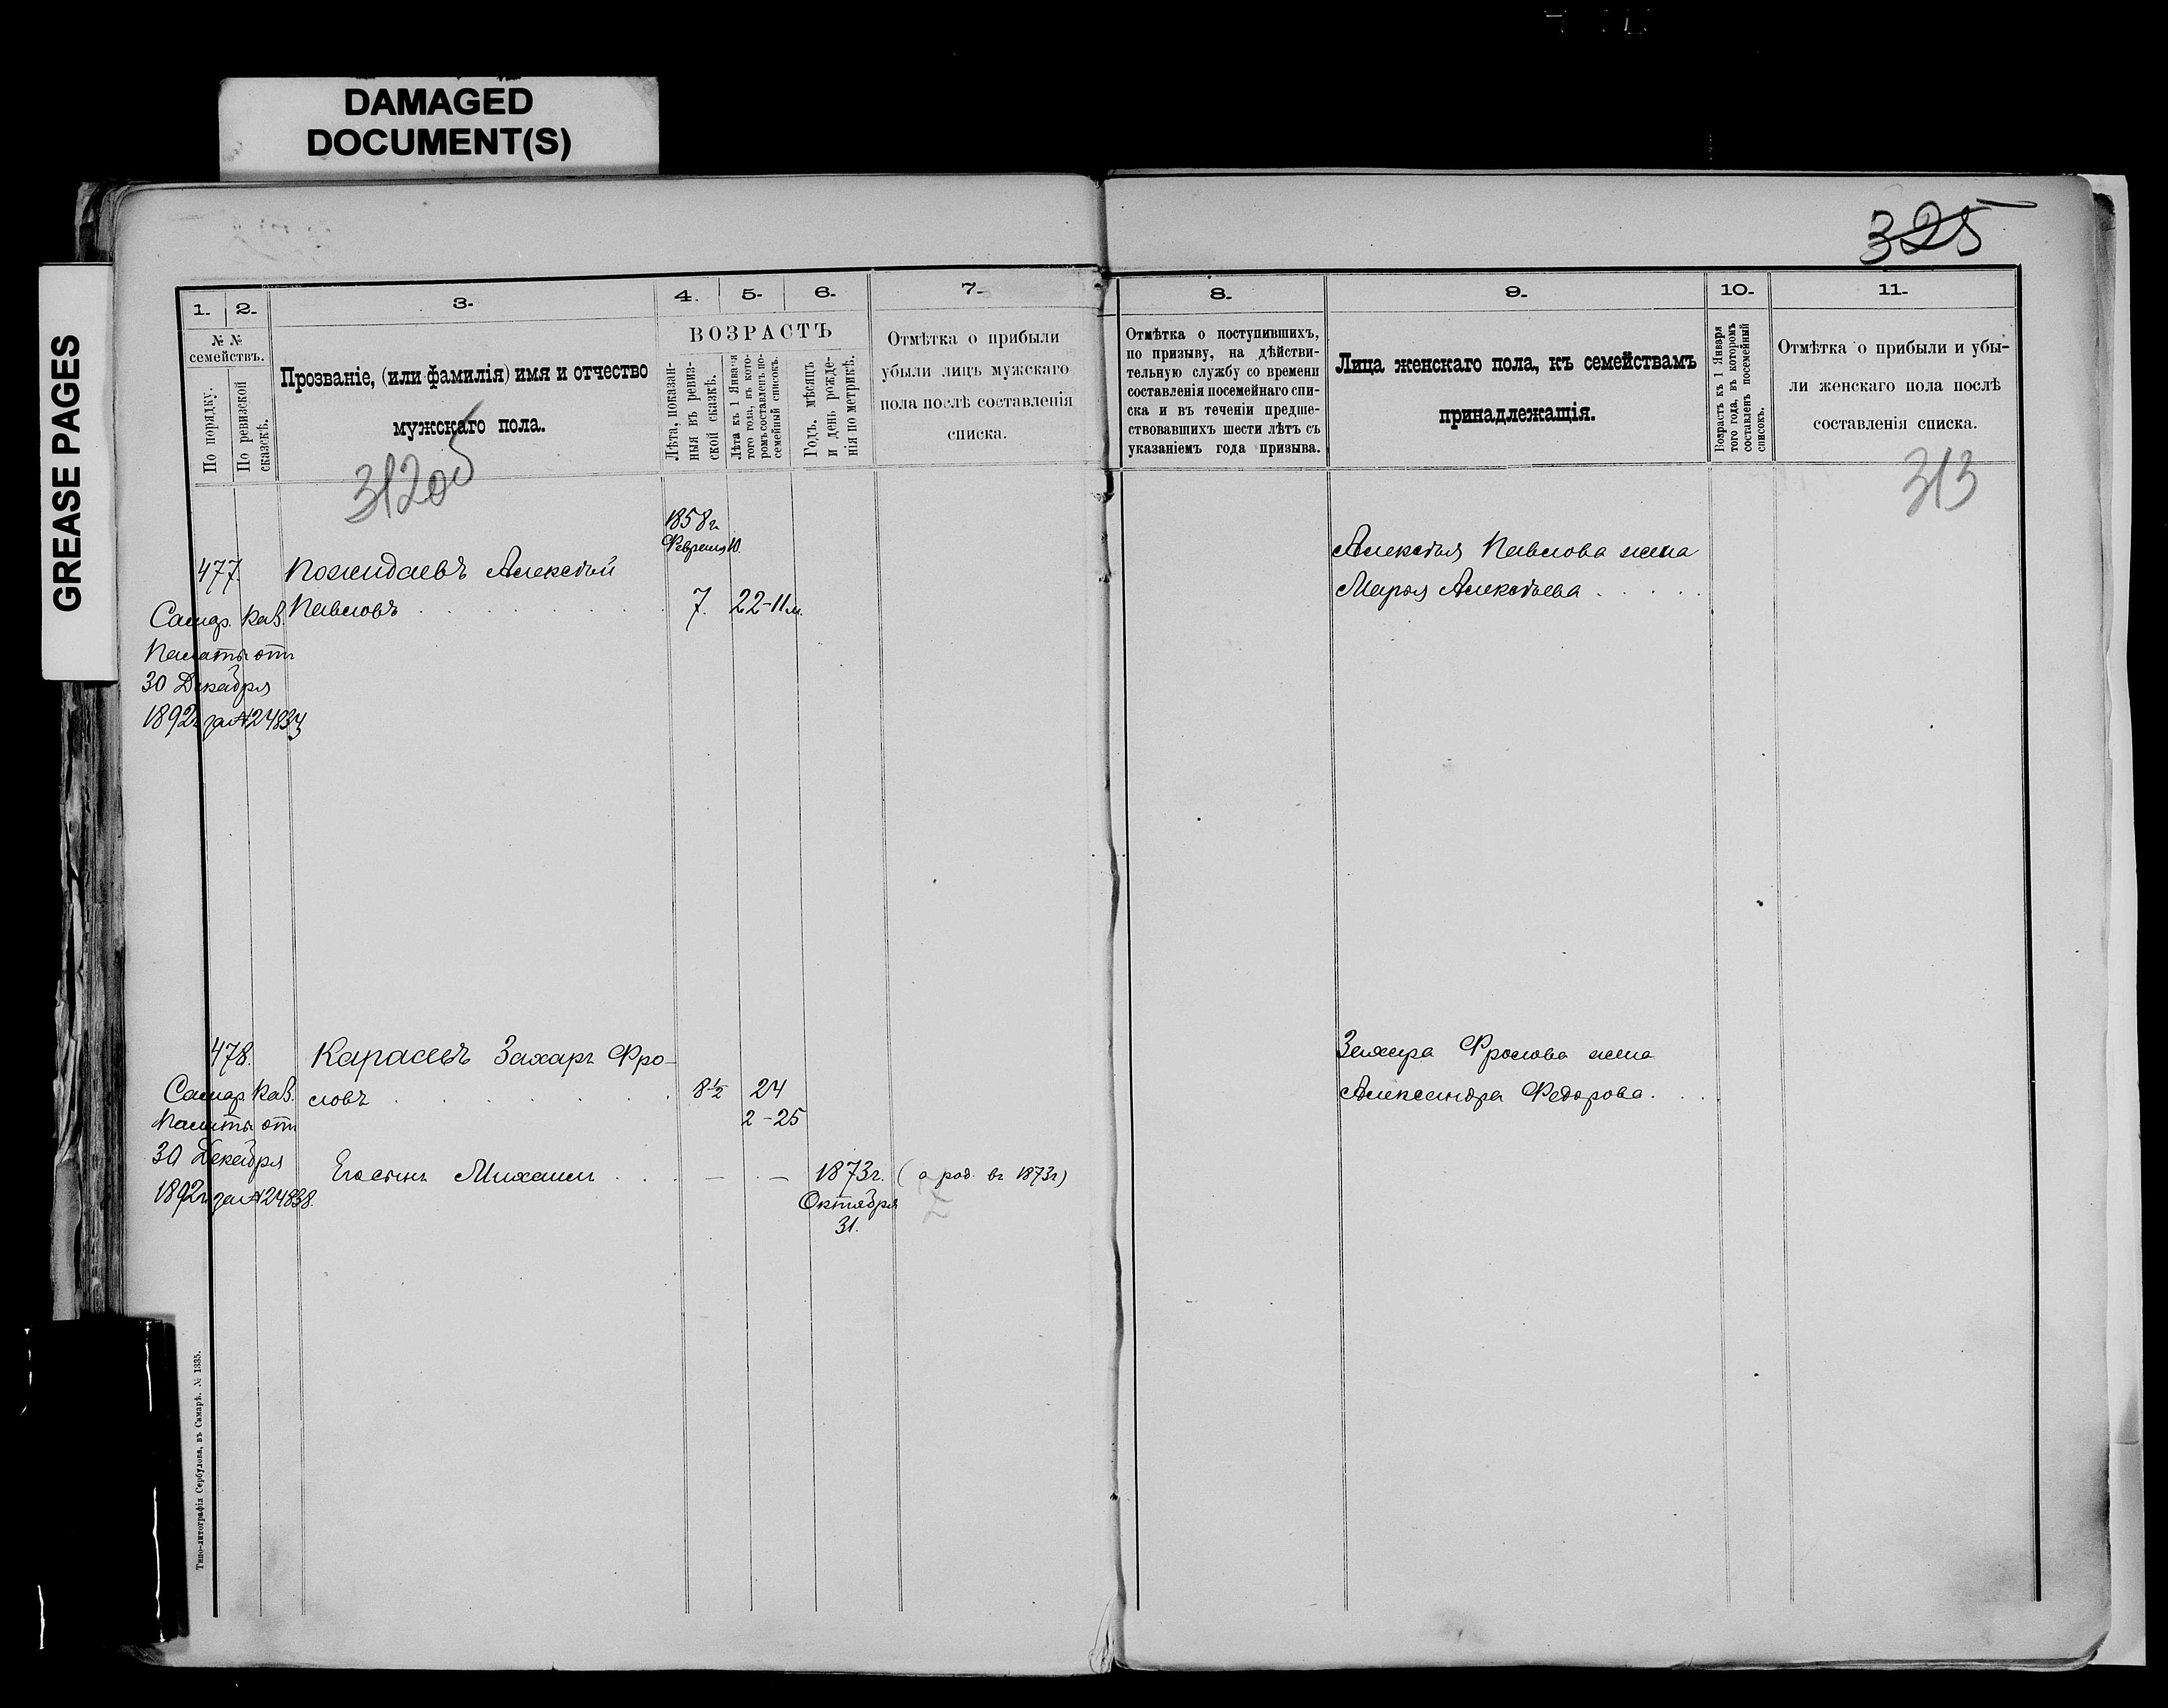 DAMAGED
DOCUMENT(S)
GREASE PAGES
325
1.
2.
3.
4.
5.
6.
7.
№ №
семействъ.
По порядку.
По ревизской
сказкѣ.
Прозваніе, (или фамилія) имя и отчество
мужскаго пола.
ВОЗРАСТЪ
Лѣта, показан-
ныя въ ревиз-
ской сказкѣ.
Лѣта къ 1 Января
того года, въ кото-
ромъ составленъ по-
семейный списокъ.
Годъ, мѣсяцъ
и день рожде-
нія по метрикѣ.
Отмѣтка о прибыли
убыли лицъ мужскаго
пола послѣ составленія
списка.
312об
1858г.
Февраля 10.
477.
Пожидаевъ Алексѣй
Павловъ
7.
22-11м.
Самар. Каз.
Палаты отъ
30 Декабря
1892г. за №24834
478.
Карасевъ Захаръ Фро-
ловъ
8½
24
2-25
Самар. Каз.
Палаты отъ
30 Декабря
1892г. за №24838.
Михаилъ
1873г.
Октября
31.
(а род. въ 1873г)
Типо-литографія Сербулова, въ Самарѣ. № 1335.
8.
9.
10.
11.
Отмѣтка о поступившихъ,
по призыву, на дѣйстви-
тельную службу со времени
составленія посемейнаго спи-
ска и въ теченіи предше-
ствовавшихъ шести лѣтъ съ
указаніемъ года призыва.
Лица женскаго пола, къ семействамъ
принадлежащія.
Возрастъ къ 1 Января
того года, въ которомъ
составленъ посемейный
списокъ.
Отмѣтка о прибыли и убы-
ли женскаго пола послѣ
составленія списка.
313
Алексѣя Павлова жена
Марья Алексѣева
Захара Фролова жена
Александра Федорова.